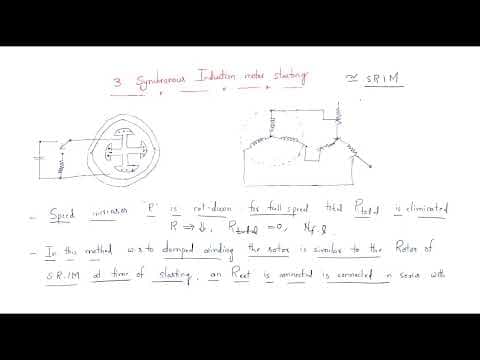 3 Synchronous Induction motor starting ≃ SRIM
- Speed increases 'R' is cut-down for full speed total Rtotal is eliminated
R ⇒ ↓, Rtotal = 0, Nf.l
- In this method w.r.to damped winding the rotor is similar to the Rotor of
SRIM at time of starting, an Rext is connected is connected in series with